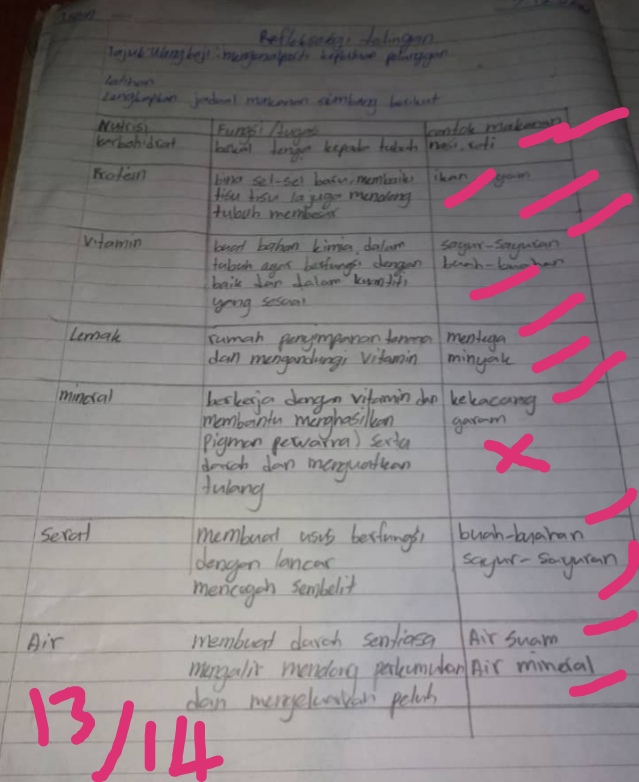 Refleksologi telingan
Latihan
Lengkapkan jadual makanan seimbang berikut
Nutrisi Fungsi/tugas contoh makanan
karbohidrat tenaga kepada tubuh nasi, roti
Protein bina sel-sel baru, membaiki ikan ayam
tisu tisu ia juga menolong
tubuh membesar
Vitamin buat bahan kimia dalam sayur-sayuran
tubuh agar berfungsi dengan buah-buahan
baik dan dalam kuantiti
yang sesuai
Lemak rumah penyimpanan tenaga mentega
dan mengandungi vitamin minyak
mineral berkerja dengan vitamin dan kekacang
membantu menghasilkan garam
pigman pewarna) serta
darah dan menguatkan
tulang
Serat membuat usus berfungsi buah-buahan
dengan lancar sayur-sayuran
mencegah sembelit
Air membuat darah sentiasa Air suam
mengalir menolong perkumuhan Air mineral
dan mengeluarkan peluh
13/14